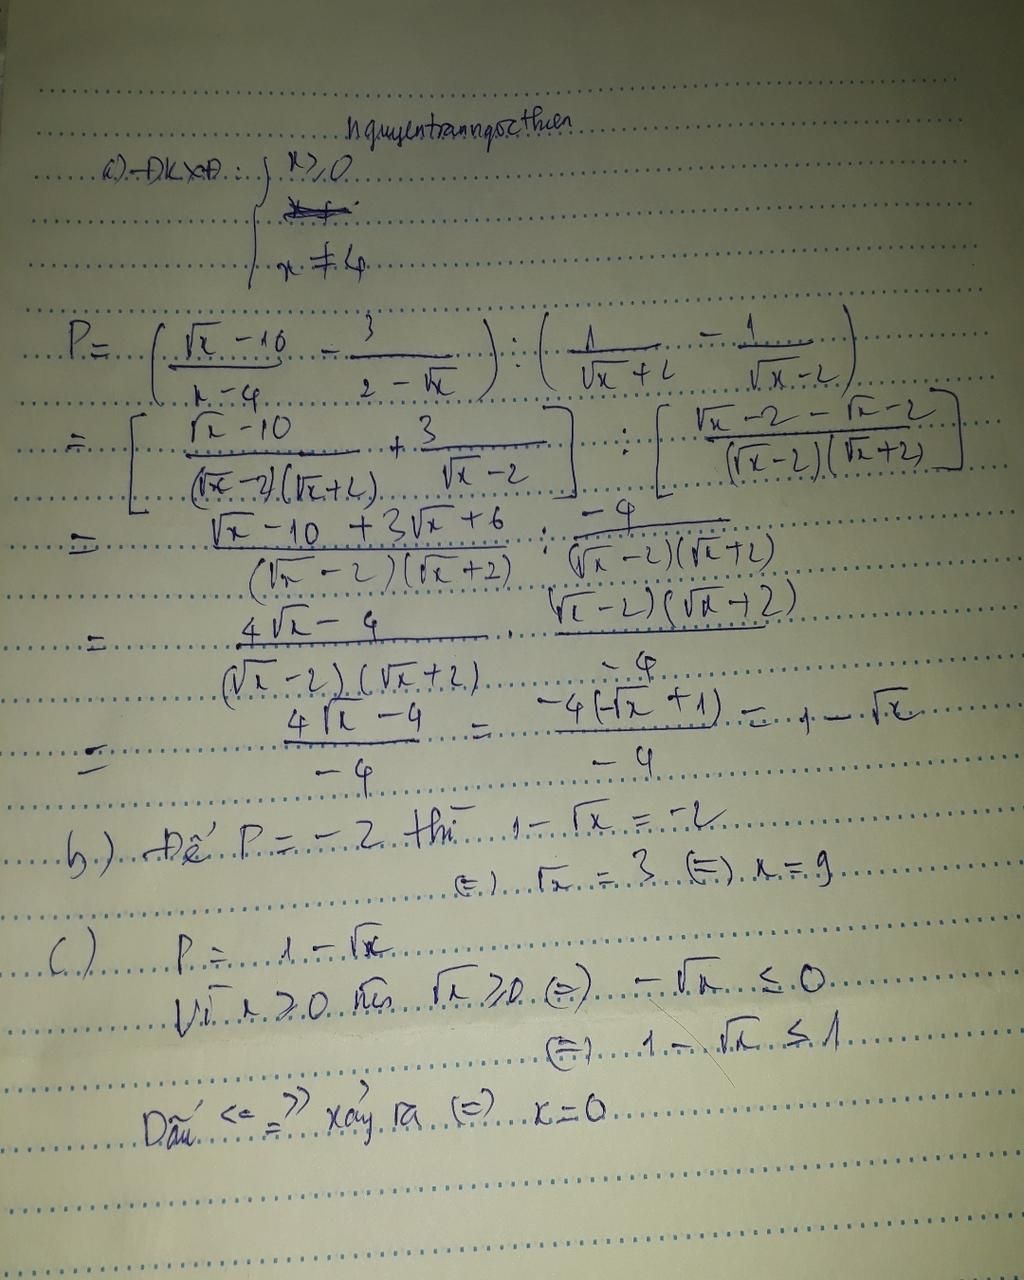 nguyentranngocthien
a) ĐKXĐ: { x ≥ 0
x ≠ 4
P = ( (√x - 10)/(x - 4) - 3/(2 - √x) ) : ( 1/(√x + 2) - 1/(√x - 2) )
= [ (√x - 10)/((√x - 2)(√x + 2)) + 3/(√x - 2) ] : [ (√x - 2 - √x - 2)/((√x - 2)(√x + 2)) ]
= (√x - 10 + 3√x + 6)/((√x - 2)(√x + 2)) : (-4)/((√x - 2)(√x + 2))
= (4√x - 4)/((√x - 2)(√x + 2)) . ((√x - 2)(√x + 2))/(-4)
= (4√x - 4)/(-4) = (-4(-√x + 1))/(-4) = 1 - √x
b) Để P = -2 thì 1 - √x = -2
(=) √x = 3 (=) x = 9
c) P = 1 - √x
Vì x ≥ 0 nên √x ≥ 0 (=) -√x ≤ 0
(=) 1 - √x ≤ 1
Dấu "=" xảy ra (=) x = 0